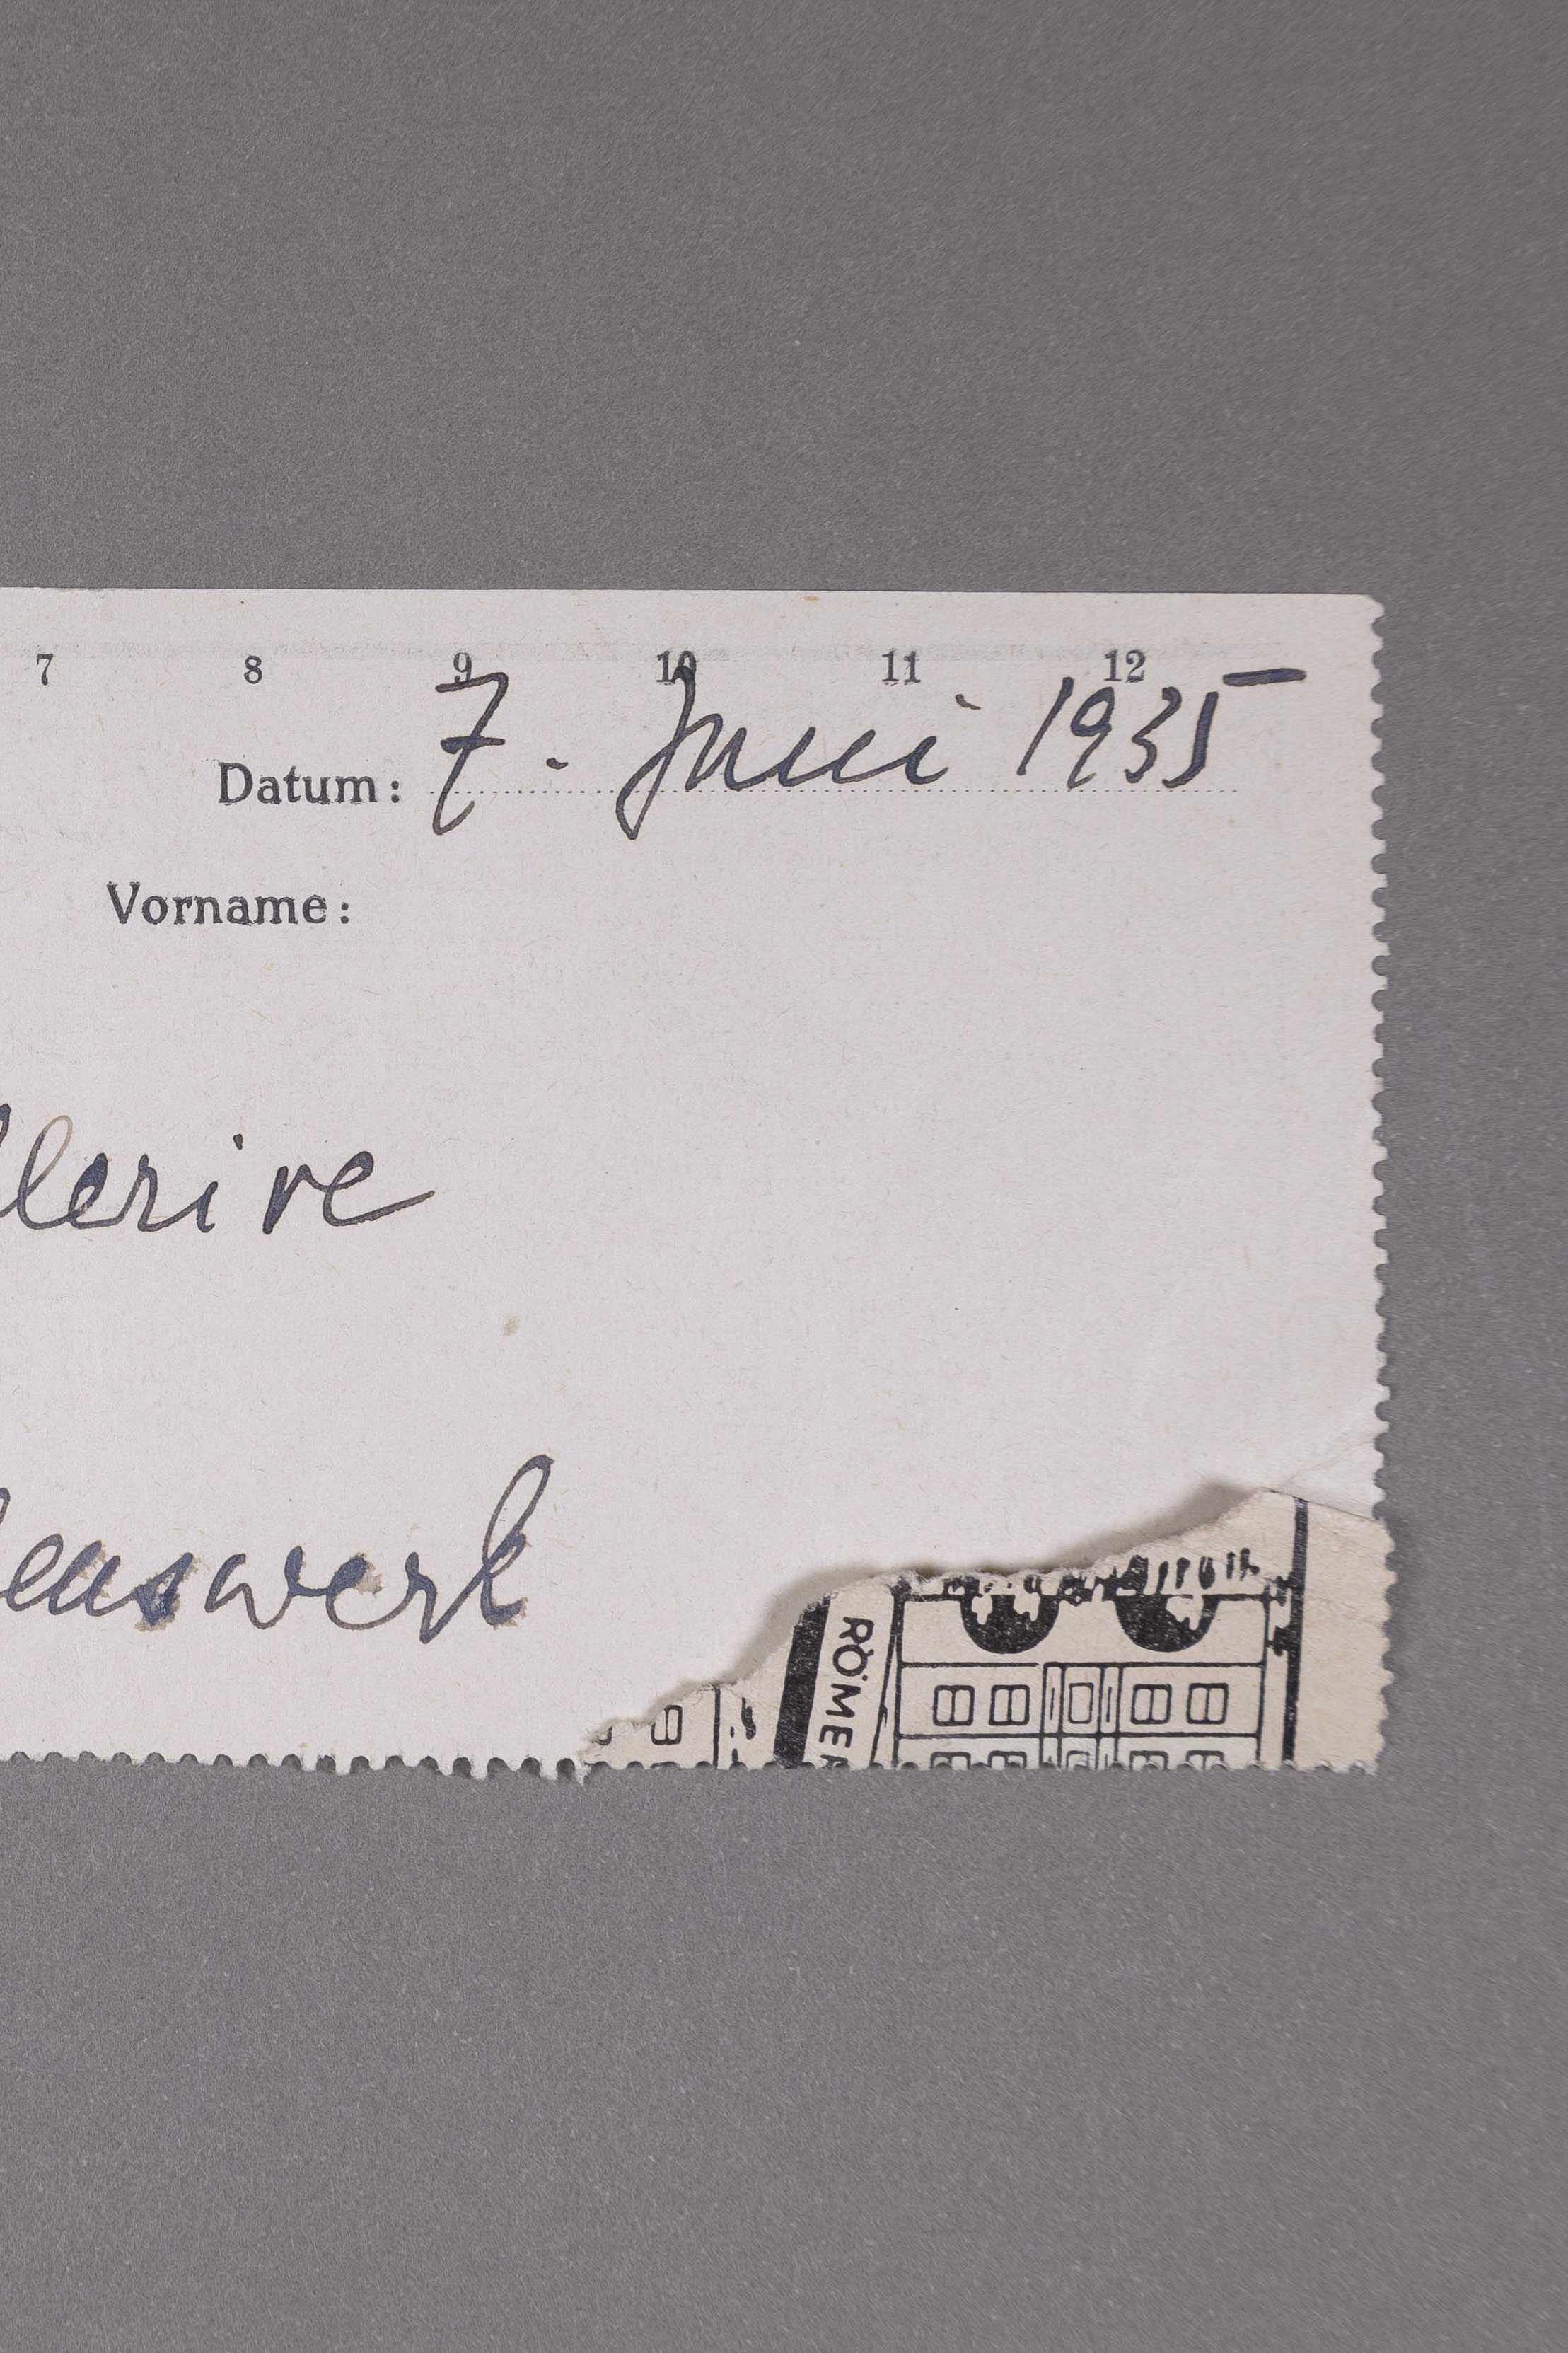 7 8 9 10 11 12
Datum: 7. Juni 1935
Vorname:
lerive
enswerk
RÖMER